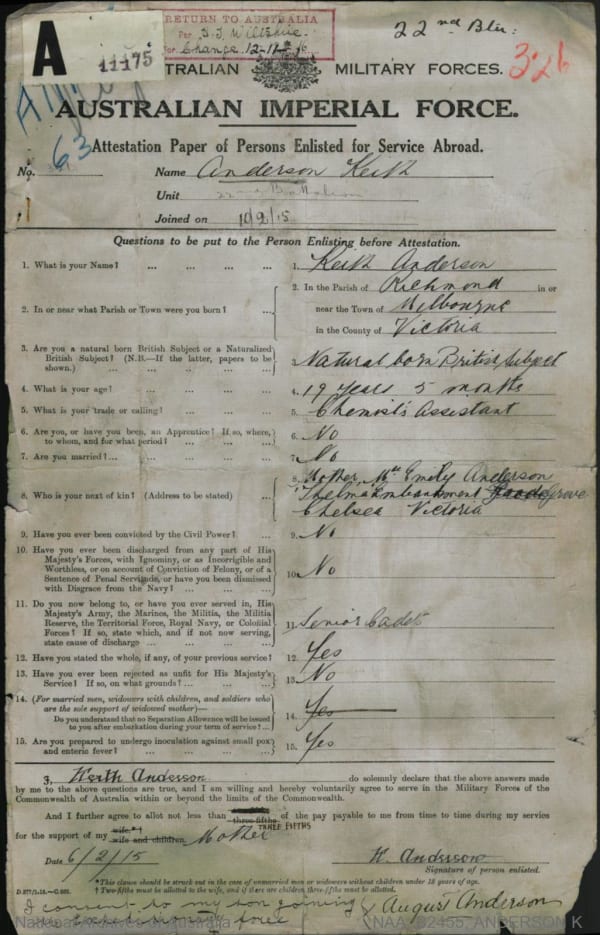 A
11175
RETURN TO AUSTRALIA
Per
for Change 12-11-
22nd Btn:
326
AUSTRALIAN MILITARY FORCES.
AUSTRALIAN IMPERIAL FORCE.
63
Attestation Paper of Persons Enlisted for Service Abroad.
No. Name Anderson Keith
Unit 22nd Battalion
Joined on 10/2/15
Questions to be put to the Person Enlisting before Attestation.
1. What is your Name? ... ... ... ... 1. Keith Anderson
2. In or near what Parish or Town were you born? ... 2. In the Parish of Richmond in or
near the Town of Melbourne
in the County of Victoria
3. Are you a natural born British Subject or a Naturalized
British Subject? (N.B.—If the latter, papers to be
shown.) ... ... ... ... 3. Natural born British Subject
4. What is your age? ... ... ... ... 4. 19 years 5 months
5. What is your trade or calling? ... ... ... 5. Chemist's Assistant
6. Are you, or have you been, an Apprentice? If so, where,
to whom, and for what period? ... ... ... 6. No
7. Are you married? ... ... ... ... 7. No
8. Who is your next of kin? (Address to be stated) ... 8. Mother, Mrs Emily Anderson
Thelma Embankment Grove
Chelsea Victoria
9. Have you ever been convicted by the Civil Power? ... 9. No
10. Have you ever been discharged from any part of His
Majesty's Forces, with Ignominy, or as Incorrigible and
Worthless, or on account of Conviction of Felony, or of a
Sentence of Penal Servitude, or have you been dismissed
with Disgrace from the Navy? ... ... ... 10. No
11. Do you now belong to, or have you ever served in, His
Majesty's Army, the Marines, the Militia, the Militia
Reserve, the Territorial Force, Royal Navy, or Colonial
Forces? If so, state which, and if not now serving,
state cause of discharge ... ... ... ... 11. Senior Cadets
12. Have you stated the whole, if any, of your previous service? 12. Yes
13. Have you ever been rejected as unfit for His Majesty's
Service? If so, on what grounds? ... ... ... 13. No
14. (For married men, widowers with children, and soldiers who
are the sole support of widowed mother)—
Do you understand that no Separation Allowance will be issued
to you after embarkation during your term of service? ... 14. Yes
15. Are you prepared to undergo inoculation against small pox
and enteric fever? ... ... ... ... 15. Yes
I, Keith Anderson do solemnly declare that the above answers made
by me to the above questions are true, and I am willing and hereby voluntarily agree to serve in the Military Forces of the
Commonwealth of Australia within or beyond the limits of the Commonwealth.
And I further agree to allot not less than three-fifths of the pay payable to me from time to time during my service
THREE FIFTHS
for the support of my wife.*†
wife and children. Mother
Date 6/2/15 K. Anderson
Signature of person enlisted.
*This clause should be struck out in the case of unmarried men or widowers without children under 18 years of age.
† Two-fifths must be allotted to the wife, and if there are children three-fifths must be allotted.
I consent to my son joining August Anderson
the Expeditionary force
National Archives of Australia NAA: B2455, ANDERSON K